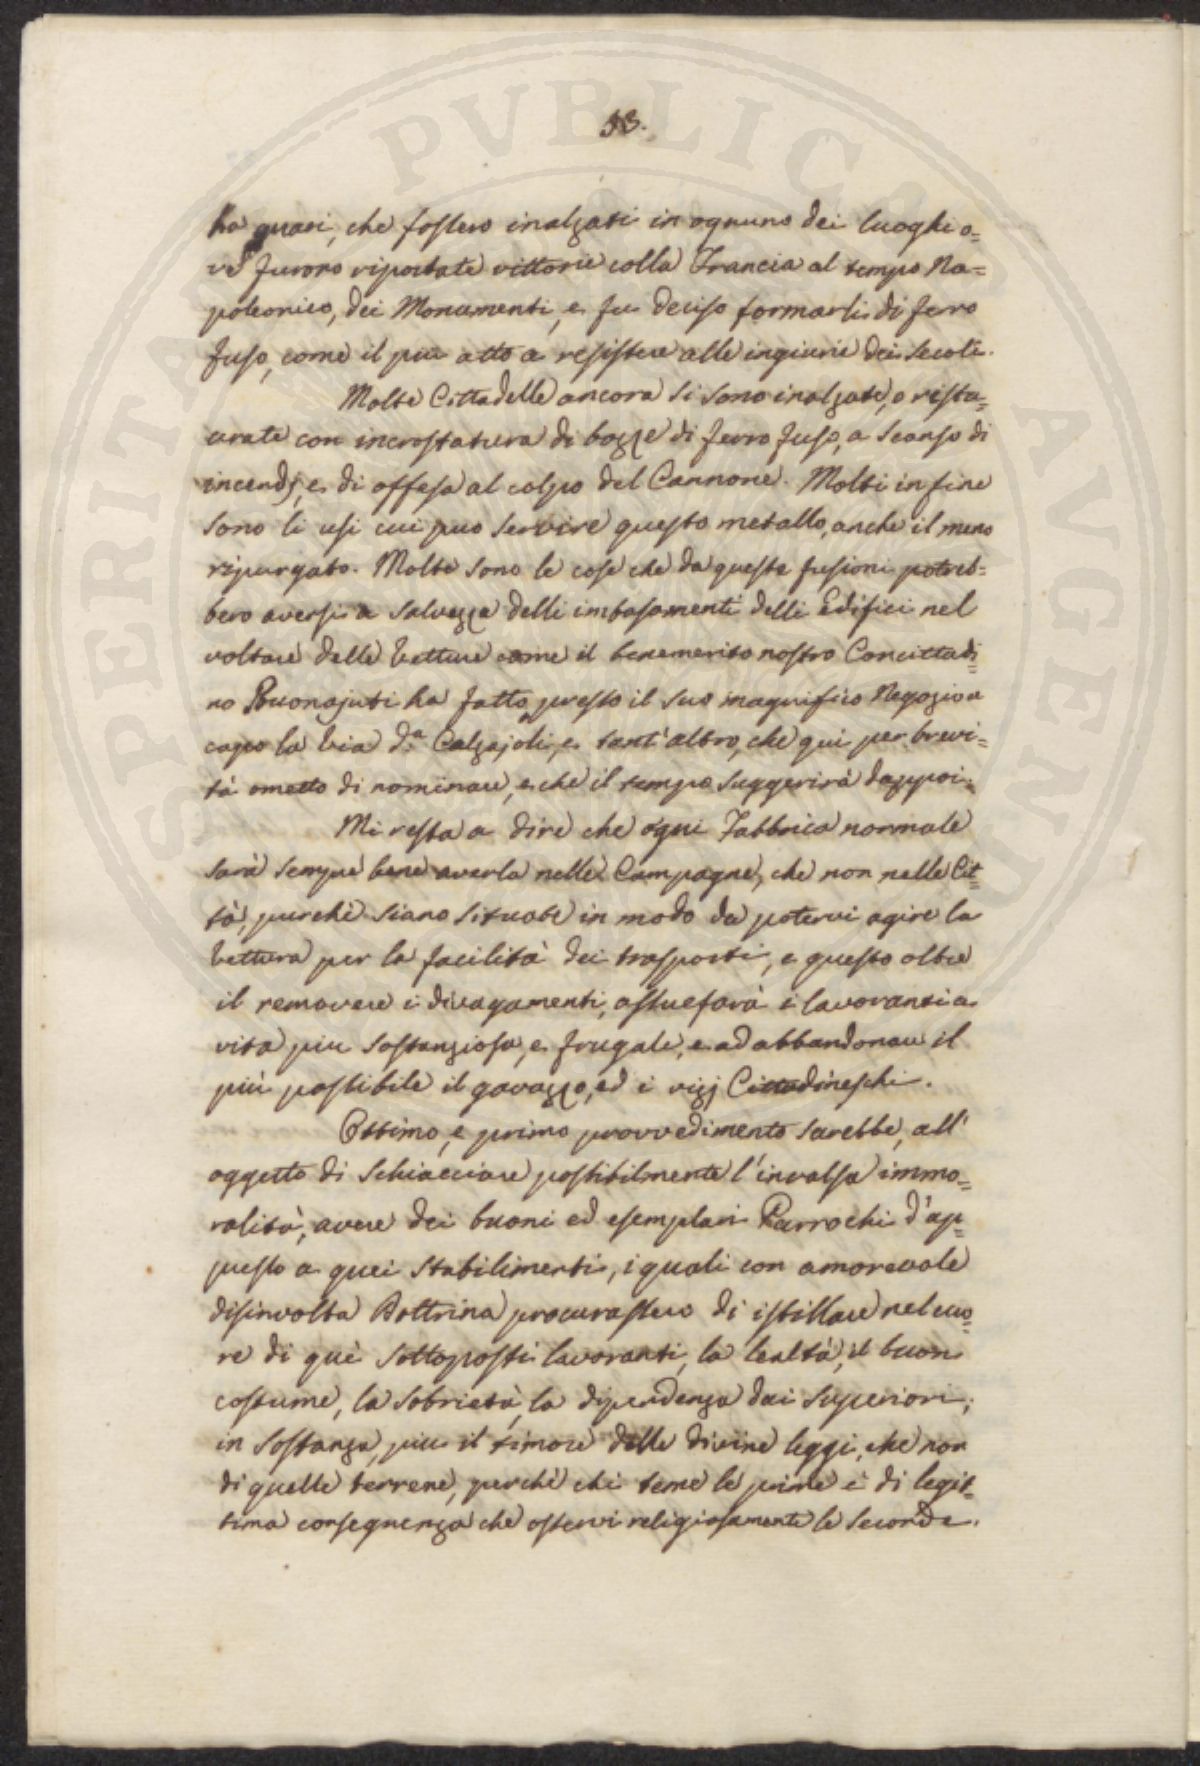 33.
ha quasi, che fossero inalzati in ognuno dei luoghi o=
ve furono riportate vittorie colla Francia al tempo Na=
poleonico, dei Monumenti, e fu deciso formarli di ferro
fuso, come il piu atto a resistere alle ingiurie dei Secoli.
Molte Cittadelle ancora si sono inalzate, o restau=
urate con incrostatura di bozze di ferro fuso, a scanso di
incendj, e di offesa al colpo del Cannone. Molti in fine
sono li usi cui puo servire questo metallo, anche il meno
ripurgato. Molte sono le cose che da queste fusioni potreb=
bero aversi a salvezza delli imbasamenti delli Edifici nel
voltare delle Vetture come il benemerito nostro Concittadi=
no Buonajuti ha fatto presso il suo magnifico Negozio a
capo la Via d.a Calzajoli, e tant'altro, che qui per brevi=
tà ometto di nominare, e che il tempo suggerirà dappoi.
Mi resta a dire che ogni Fabbrica normale
sarà sempre bene averla nelle Campagne, che non nelle Cit=
tà, purchè siano situate in modo da potervi agire la
Vettura per la facilità dei trasporti, e questo oltre
il removere i divagamenti, assuefarà i lavoranti a
vita piu sostanziosa, e frugale, e ad abbandonare il
più possibile il gavazzo, ed i vizj Cittadineschi.
Ottimo, e primo provvedimento sarebbe, all'
oggetto di schiacciare possibilmente l'invalsa immo=
ralità, avere dei buoni ed esemplari Parrochi d'ap=
presso a quei Stabilimenti, i quali con amorevole
disinvolta Dottrina procurassero di istillare nel cuo=
re di quei sottoposti lavoranti, la lealtà, il buon
costume, la sobrietà, la dipendenza dai Superiori,
in sostanza, piu il timore delle divine leggi, che non
di quelle terrene, perchè chi teme le prime è di legit=
tima conseguenza che osservi religiosamente le seconde.
SPERITAS PVBLICA AVGENDA